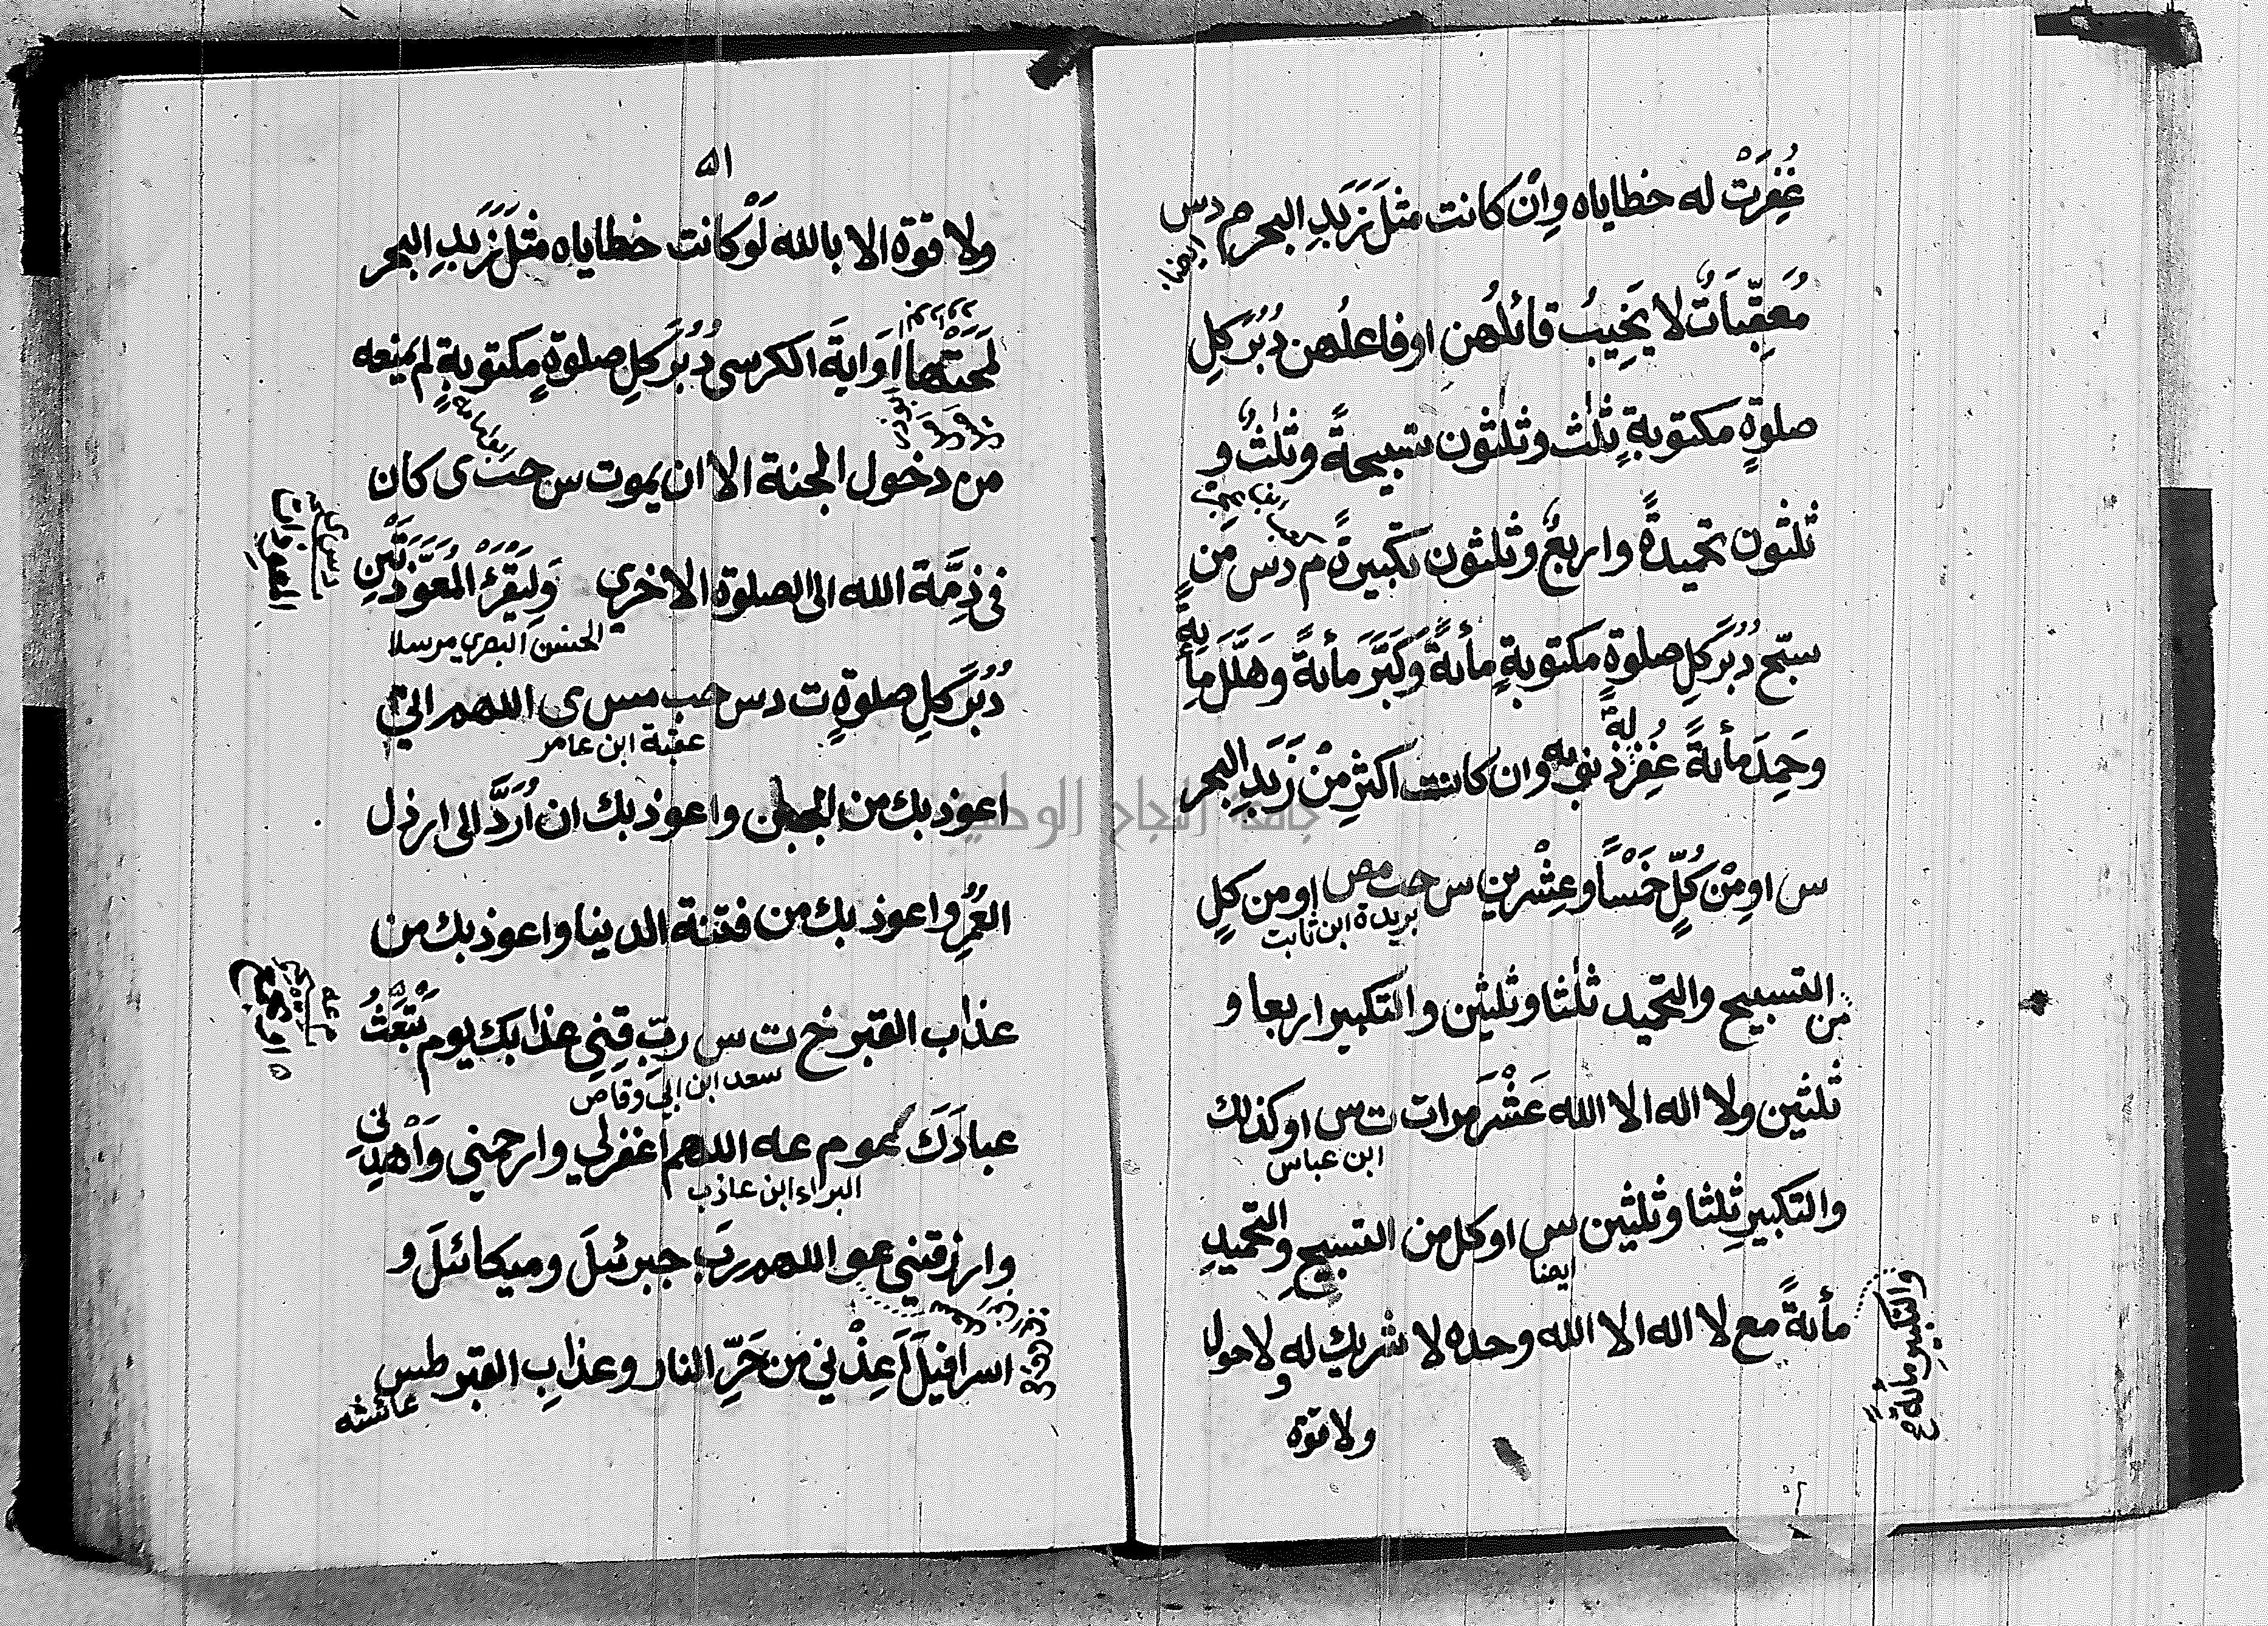 غُفِرَتْ له خطاياه وإن كانت مثلَ زَبَدِ البحر م د س
ايضا
مُعَقِّبَاتٌ لا يَخِيبُ قائلُهن او فاعلُهن دُبُرَ كلِ
صلوةٍ مكتوبةٍ ثلٰث وثلثون تسبيحةً وثلٰثٌ و
ثلثون تحميدةً واربعٌ وثلثون تكبيرةً م د س مَن
سبّح دُبُرَ كلِ صلوةٍ مكتوبةٍ مأىةً وكَبَّرَ مأىةً وهَلَّلَ مأىةً
وحَمِدَ مأىةً غُفِرَ له ذنوبه وان كانت اكثر مِنْ زَبَدِ البحر
س او مِنْ كُلٍّ خَمْساً وعِشْرين س حب مص او من كلٍ
بريدة ابن ثابت
من التسبيح والتحميد ثلٰثا وثلثين والتكبير اربعا و
ثلثين ولا اله الا الله عَشْرَ مرات ت س او كذلك
ابن عباس
والتكبيرِ ثلثا وثلثين س او كل من التسبيحِ والتحميدِ
ايضا
والتكبيرِ مأىةً
مأىةً مع لا اله الا الله وحده لا شريك له ولا حول
ولا قوة
٥١
ولا قوة الا بالله لَوْ كانت خطاياه مثلَ زَبَدِ البحر
لَمَحَتْها ا وَايةَ الكرسى دُبُرَ كلِ صلوةٍ مكتوبةٍ لم يمنعه
من دخول الجنة الا ان يموت س حب ى كان
فى ذِمَّة الله الى الصلوة الاخرى وليَقْرَءْ المُعَوِّذَتَيْنِ
الحسن البصري مرسلا
دُبُرَ كلِ صلوةٍ ت د س حب مس ى اللهم اني
عقبة ابن عامر
اعوذ بك من الجبن واعوذ بك ان اُرَدَّ الى ارذل
العُمُرِ واعوذ بك من فتنة الدينا واعوذ بك من
عذاب القبر خ ت س ربِّ قِنِي عذابك يوم تَبْعَثُ
سعد ابن ابي وقاص
عبادَكَ م عه اللهم اغفر لي وارحمني وَاهْدِنى
البراء ابن عازب
وارزقني عو اللهم ربَّ جبرئلَ وميكائلَ و
اسرافيلَ اَعِذْني من حَرِّ النار وعذابِ القبر طس
عائشه